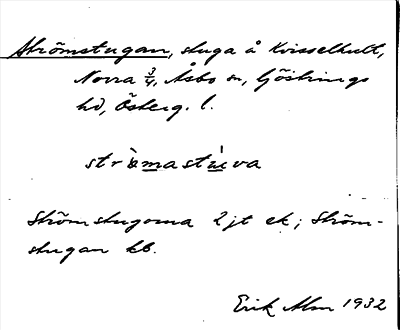 Strömstugan, stuga å Kvisselhult,
Norra 3/4, Åsbo sn, Göstrings
hd, Österg. l.
strö̀mastùva
Strömstugorna 2 jt ek; Ström-
stugan kb.
Erik Alm 1932